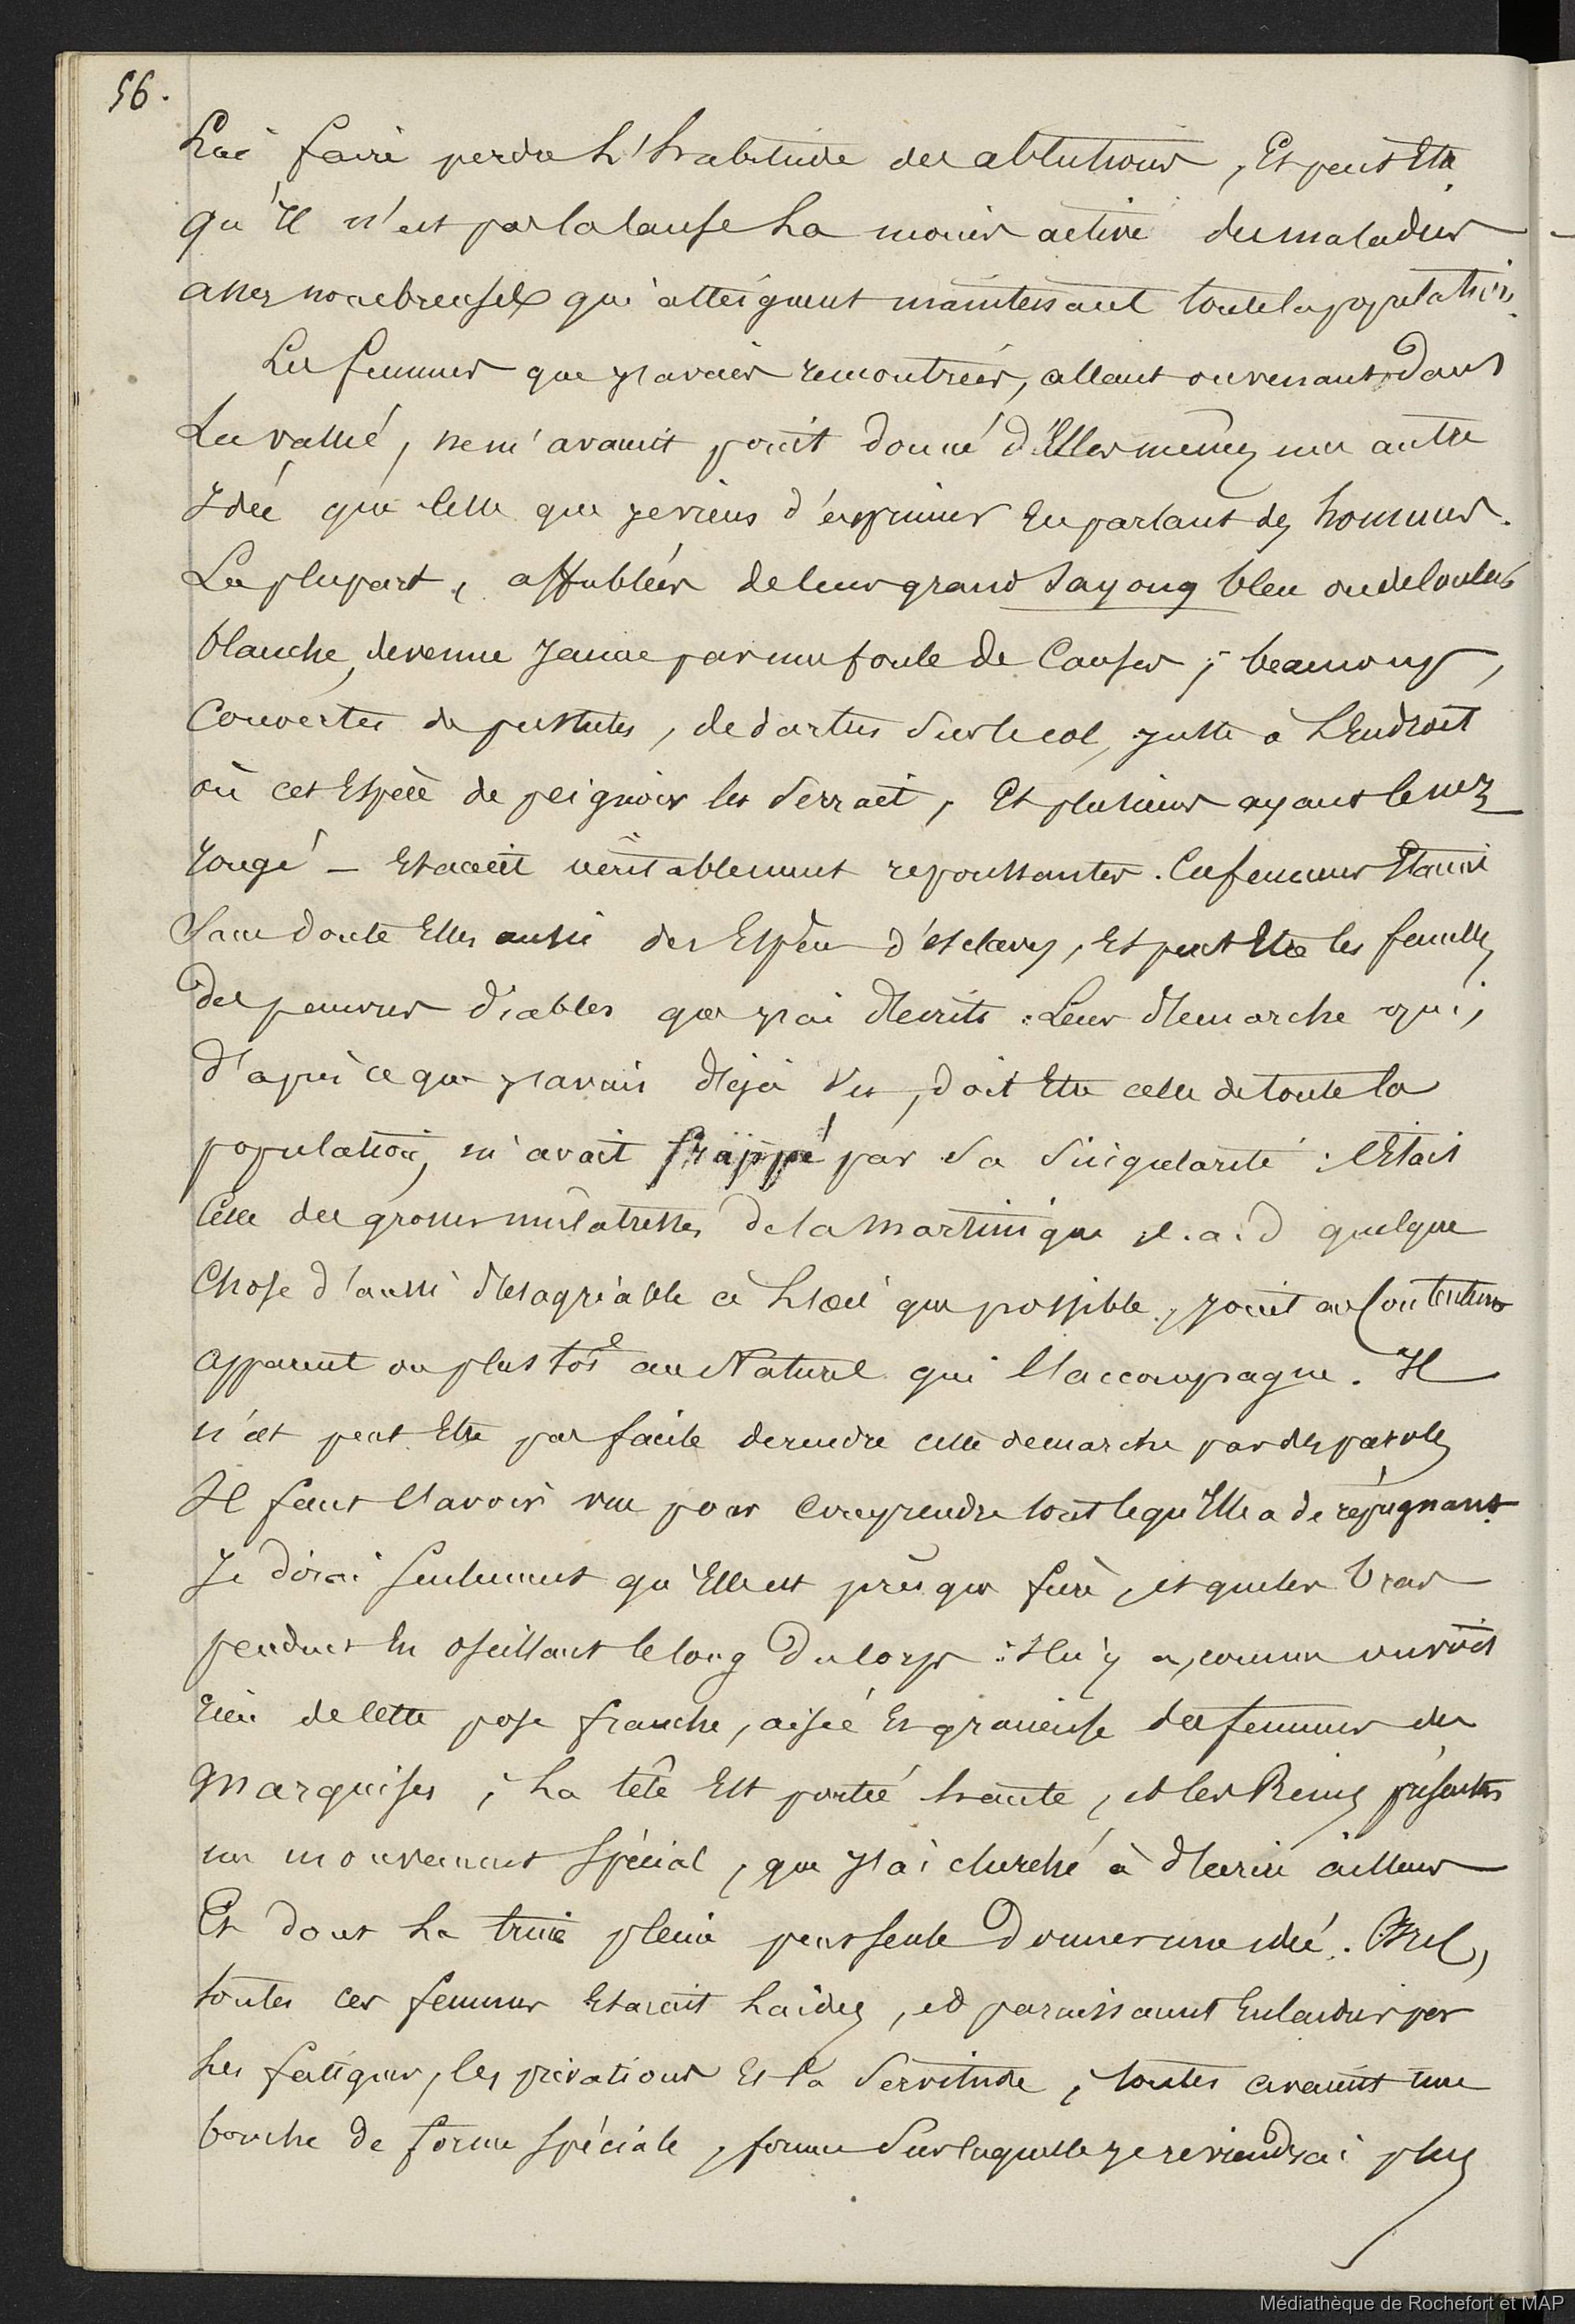 56.
Lui faire perdre l'habitude des ablutions, Et peut Etre
qu'Il n'est pas la cause La moins active des maladies
assez nombreuses qui atteignent maintenant toute la population.
Les femmes que j'avais rencontrées, allant ou venant dans
La vallée, ne m'avaient point donné d'Elles mêmes une autre
Idée que celle que je viens d'exprimer En parlant des hommes.
La plupart, affublées de leur grand Sayong bleu ou de couleur
blanche, devenue Jaune par une foule de Causes ; beaucoup,
Couvertes de pustules, de dartres Sur le col, juste à L'Endroit
où cet Espèce de peignoir les Serrait, Et plusieurs ayant le nez
rongé – Etaient véritablement repoussantes. Ces femmes Etaient
Sans doute Elles aussi des Espèces d'esclaves, Et peut Etre les femelles
des pauvres diables que j'ai décrits : Leur démarche qui,
d'après ce que j'avais déjà vu, doit Etre celle de toute la
population, m'avait frappé par Sa Singularité : C'Etait
Celle des grosses mulatresses de la Martinique c.a.d quelque
Chose d'aussi désagréable à L'œil que possible, joint au Contentement
apparent ou plustôt au Naturel qui l'accompagne. Il
n'est peut Etre pas facile de rendre cette demarche par des paroles
Il faut l'avoir vue pour comprendre tout ce qu'Elle a de répugnant.
Je dirai Seulement qu'Elle est presque fière, et que les bras
pendent En oscillant le long du corps : Il n'y a, comme on voit
rien de cette pose franche, aisée Et gracieuse des femmes des
Marquises ; La tête Est portée haute, et les Reins présentent
un mouvement Spécial, que j'ai cherché à décrire ailleurs
Et dont La truie pleine peut seule donner une idée. Bref,
toutes ces femmes Etaient Laides, et paraissaient Enlaidies par
Les fatigues, les privations Et la Servitude ; toutes avaient une
bouche de forme Spéciale, forme Sur laquelle je reviendrai plus
Médiathèque de Rochefort et MAP